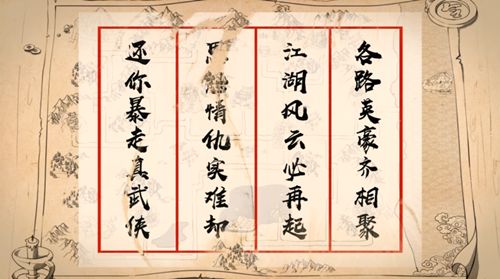 各路英豪齐相聚
江湖风云必再起
恩情仇实难却
还你暴走真武侠